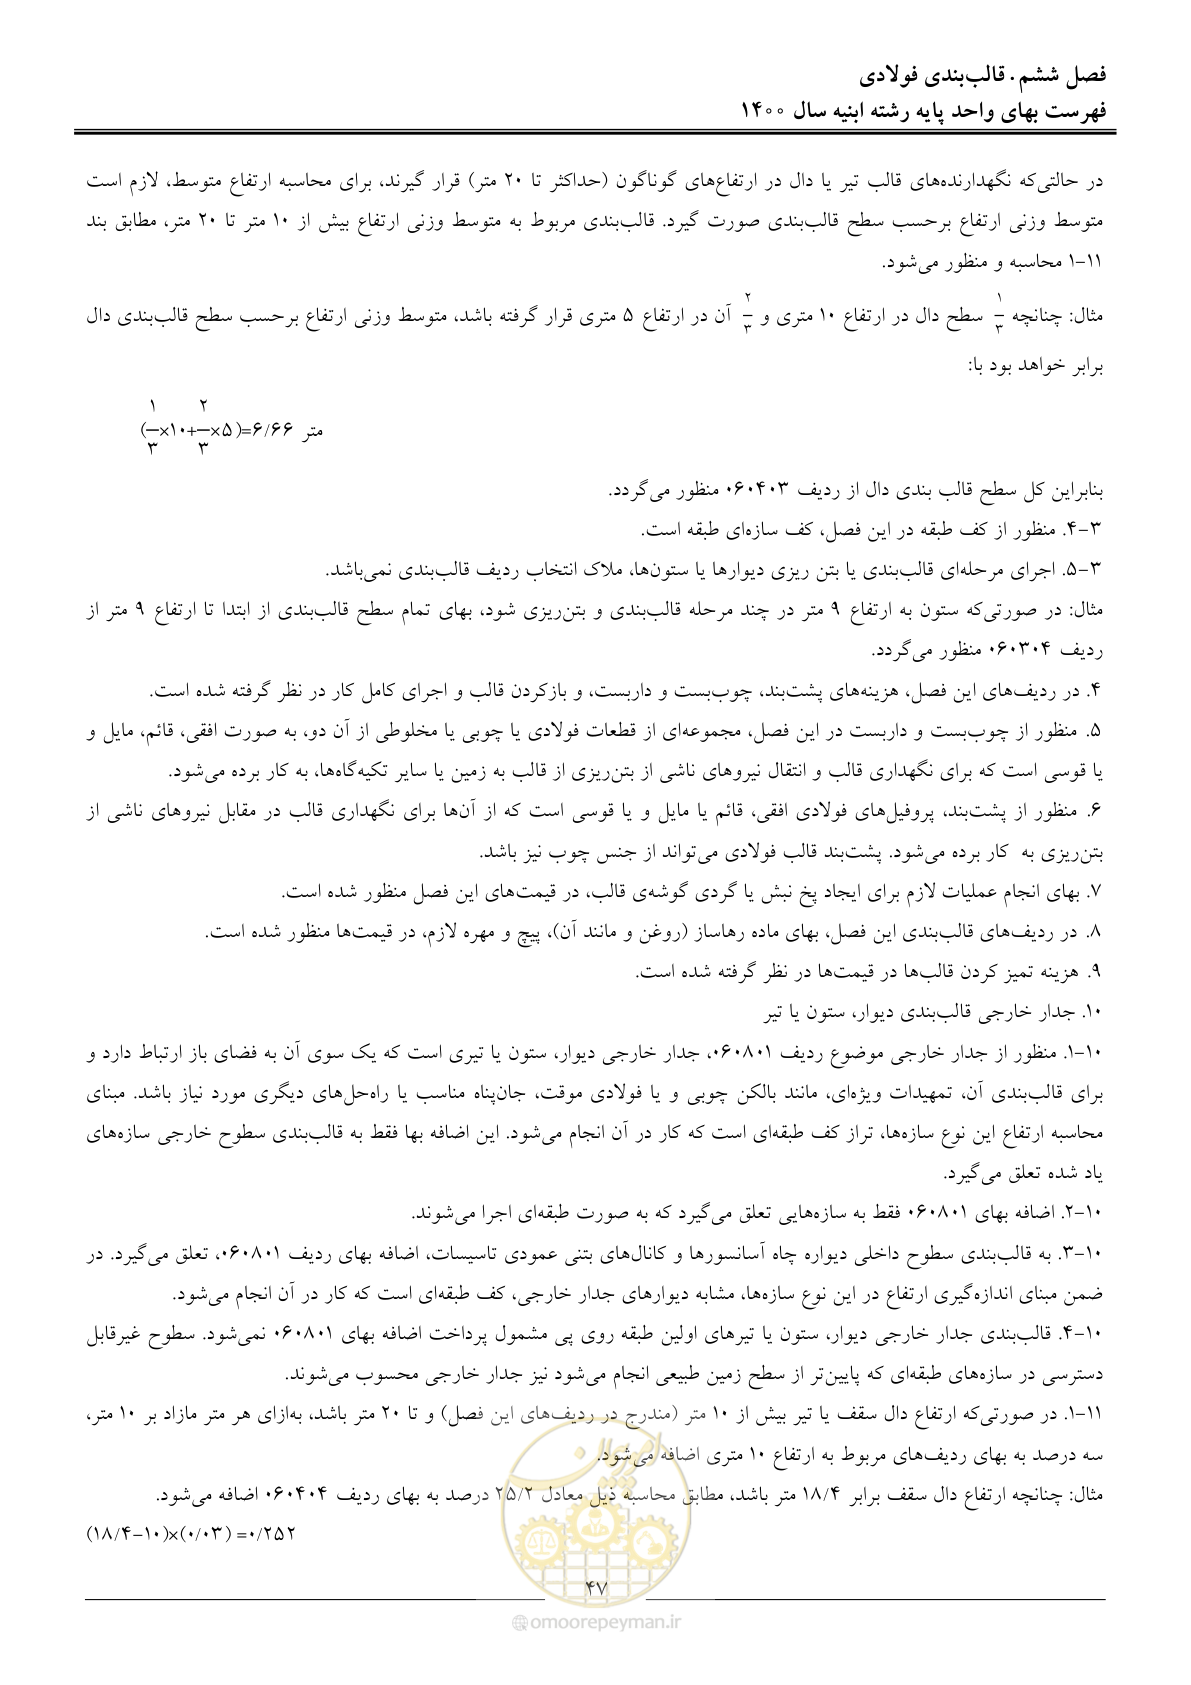 فصل ششم. قالب‌بندی فولادی
فهرست بهای واحد پایه رشته ابنیه سال ۱۴۰۰
در حالتی‌که نگهدارنده‌های قالب تیر یا دال در ارتفاع‌های گوناگون (حداکثر تا ۲۰ متر) قرار گیرند، برای محاسبه ارتفاع متوسط، لازم است
متوسط وزنی ارتفاع برحسب سطح قالب‌بندی صورت گیرد. قالب‌بندی مربوط به متوسط وزنی ارتفاع بیش از ۱۰ متر تا ۲۰ متر، مطابق بند
۱-۱۱ محاسبه و منظور می‌شود.
مثال: چنانچه ۱/۳ سطح دال در ارتفاع ۱۰ متری و ۲/۳ آن در ارتفاع ۵ متری قرار گرفته باشد، متوسط وزنی ارتفاع برحسب سطح قالب‌بندی دال
برابر خواهد بود با:
(۱/۳×۱۰+۲/۳×۵)=۶/۶۶ متر
بنابراین کل سطح قالب بندی دال از ردیف ۰۶۰۴۰۳ منظور می‌گردد.
۴-۳. منظور از کف طبقه در این فصل، کف سازه‌ای طبقه است.
۵-۳. اجرای مرحله‌ای قالب‌بندی یا بتن ریزی دیوارها یا ستون‌ها، ملاک انتخاب ردیف قالب‌بندی نمی‌باشد.
مثال: در صورتی‌که ستون به ارتفاع ۹ متر در چند مرحله قالب‌بندی و بتن‌ریزی شود، بهای تمام سطح قالب‌بندی از ابتدا تا ارتفاع ۹ متر از
ردیف ۰۶۰۳۰۴ منظور می‌گردد.
۴. در ردیف‌های این فصل، هزینه‌های پشت‌بند، چوب‌بست و داربست، و بازکردن قالب و اجرای کامل کار در نظر گرفته شده است.
۵. منظور از چوب‌بست و داربست در این فصل، مجموعه‌ای از قطعات فولادی یا چوبی یا مخلوطی از آن دو، به صورت افقی، قائم، مایل و
یا قوسی است که برای نگهداری قالب و انتقال نیروهای ناشی از بتن‌ریزی از قالب به زمین یا سایر تکیه‌گاه‌ها، به کار برده می‌شود.
۶. منظور از پشت‌بند، پروفیل‌های فولادی افقی، قائم یا مایل و یا قوسی است که از آن‌ها برای نگهداری قالب در مقابل نیروهای ناشی از
بتن‌ریزی به کار برده می‌شود. پشت‌بند قالب فولادی می‌تواند از جنس چوب نیز باشد.
۷. بهای انجام عملیات لازم برای ایجاد پخ نبش یا گردی گوشه‌ی قالب، در قیمت‌های این فصل منظور شده است.
۸. در ردیف‌های قالب‌بندی این فصل، بهای ماده رهاساز (روغن و مانند آن)، پیچ و مهره لازم، در قیمت‌ها منظور شده است.
۹. هزینه تمیز کردن قالب‌ها در قیمت‌ها در نظر گرفته شده است.
۱۰. جدار خارجی قالب‌بندی دیوار، ستون یا تیر
۱-۱۰. منظور از جدار خارجی موضوع ردیف ۰۶۰۸۰۱، جدار خارجی دیوار، ستون یا تیری است که یک سوی آن به فضای باز ارتباط دارد و
برای قالب‌بندی آن، تمهیدات ویژه‌ای، مانند بالکن چوبی و یا فولادی موقت، جان‌پناه مناسب یا راه‌حل‌های دیگری مورد نیاز باشد. مبنای
محاسبه ارتفاع این نوع سازه‌ها، تراز کف طبقه‌ای است که کار در آن انجام می‌شود. این اضافه بها فقط به قالب‌بندی سطوح خارجی سازه‌های
یاد شده تعلق می‌گیرد.
۲-۱۰. اضافه بهای ۰۶۰۸۰۱ فقط به سازه‌هایی تعلق می‌گیرد که به صورت طبقه‌ای اجرا می‌شوند.
۳-۱۰. به قالب‌بندی سطوح داخلی دیواره چاه آسانسورها و کانال‌های بتنی عمودی تاسیسات، اضافه بهای ردیف ۰۶۰۸۰۱، تعلق می‌گیرد. در
ضمن مبنای اندازه‌گیری ارتفاع در این نوع سازه‌ها، مشابه دیوارهای جدار خارجی، کف طبقه‌ای است که کار در آن انجام می‌شود.
۴-۱۰. قالب‌بندی جدار خارجی دیوار، ستون یا تیرهای اولین طبقه روی پی مشمول پرداخت اضافه بهای ۰۶۰۸۰۱ نمی‌شود. سطوح غیرقابل
دسترسی در سازه‌های طبقه‌ای که پایین‌تر از سطح زمین طبیعی انجام می‌شود نیز جدار خارجی محسوب می‌شوند.
۱-۱۱. در صورتی‌که ارتفاع دال سقف یا تیر بیش از ۱۰ متر (مندرج در ردیف‌های این فصل) و تا ۲۰ متر باشد، به‌ازای هر متر مازاد بر ۱۰ متر،
سه درصد به بهای ردیف‌های مربوط به ارتفاع ۱۰ متری اضافه می‌شود.
مثال: چنانچه ارتفاع دال سقف برابر ۱۸/۴ متر باشد، مطابق محاسبه ذیل معادل ۲۵/۲ درصد به بهای ردیف ۰۶۰۴۰۴ اضافه می‌شود.
(۱۸/۴-۱۰)×(۰/۰۳) =۰/۲۵۲
امور پیمان
۴۷
omoorepeyman.ir